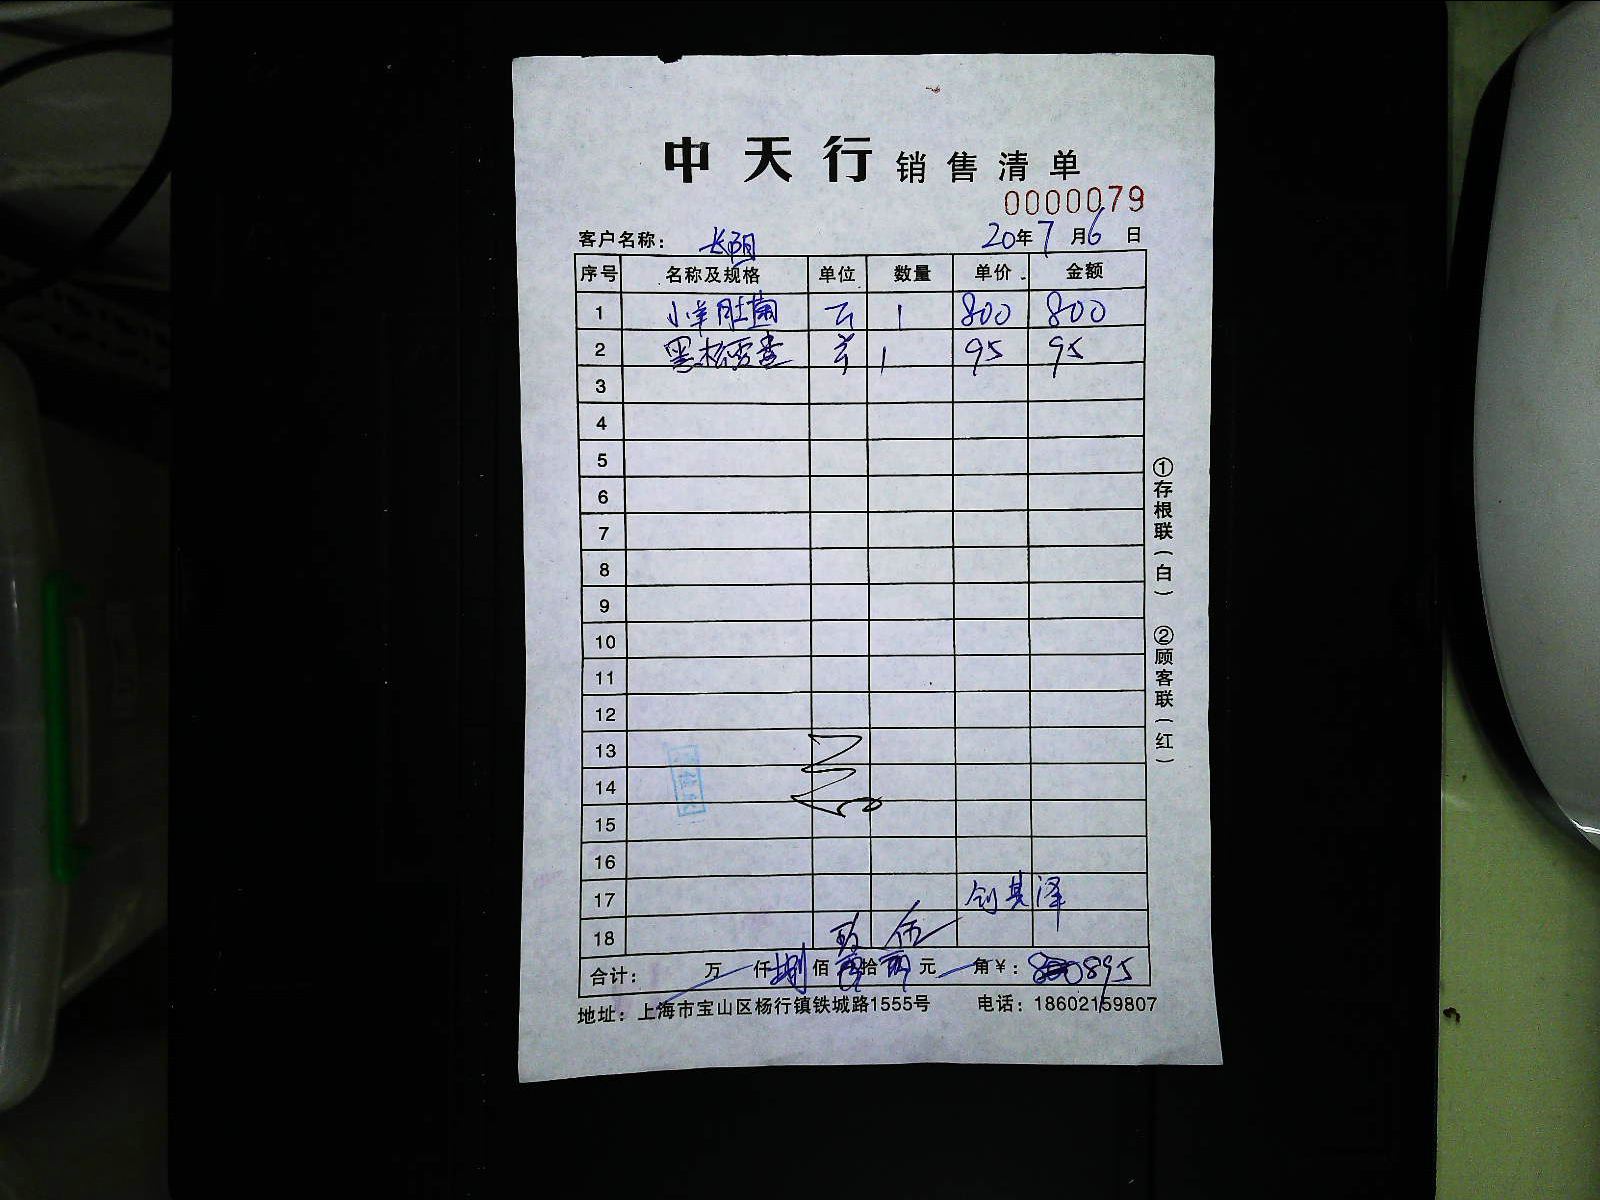 中天行 销售清单
0000079
客户名称： 长阳 20年7月6日
序号 名称及规格 单位 数量 单价 金额
1 小羊肚菌 斤 1 800 800
2 1 95 95
3
4
5
6
7
8
9
10
11
12
13
14
15
16
17
18 玖 伍
合计： 万 仟 捌 佰 拾 元 角￥： 895
地址：上海市宝山区杨行镇铁城路1555号 电话：18602159807
①存根联（白） ②顾客联（红）